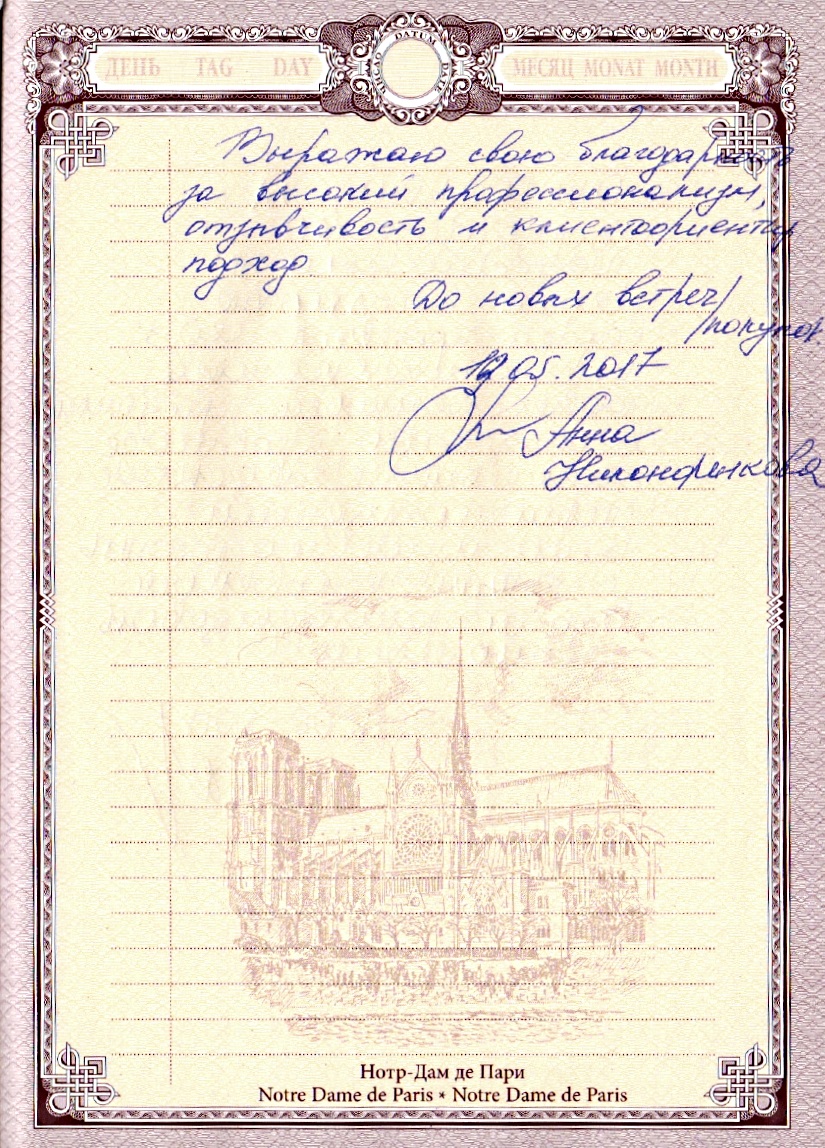 ДЕНЬ TAG DAY
ЧИСЛО DATUM DATE
МЕСЯЦ MONAT MONTH
Выражаю свою благодарность
за высокий профессионализм,
отзывчивость и клиентоориентир
подход.
До новых встреч/
/покупок
12.05.2017
Анна
Нотр-Дам де Пари
Notre Dame de Paris * Notre Dame de Paris